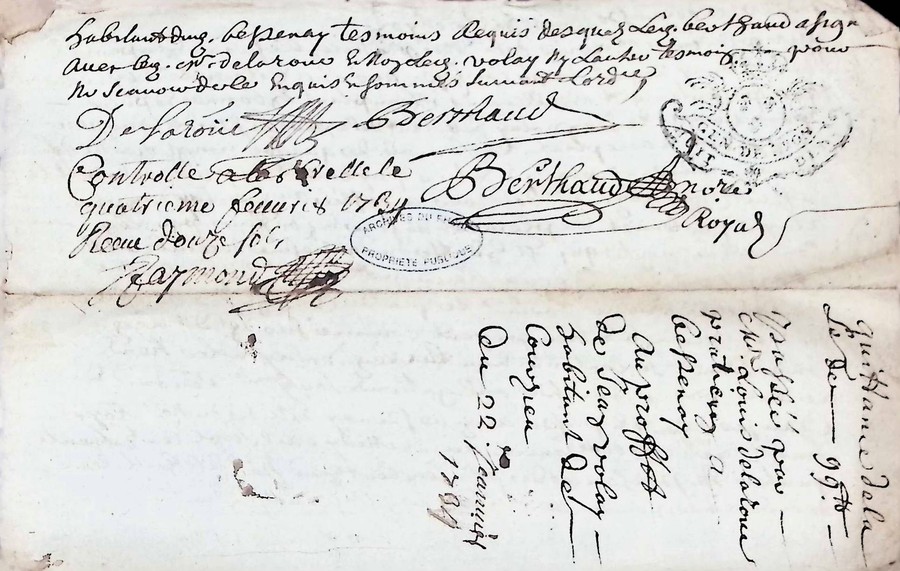 habitant dud. bessenay tesmoins Requis desquels Led. berthaud a signé
avec led. sr. delaroue & Moy Led. volay Ny Lautre tesmoin pour
Ne scavoir de ce Enquis & sommés suivant Lord.ce
Delaroüe Berthaud
Controllé a
quatrieme feuvrier 1734 Berthaud nore
Receu douze sols Royal
Raymond
ARCHIVES DU
PROPRIETE PUBLIQUE
GEN. DE LYON
quittance de la
Se de 99 tt
passée par
Louis delaroue
praticien a
bessenay
Au proffit
de Jean volay
habitant de
Couzieu
du 22 Janvier
1734